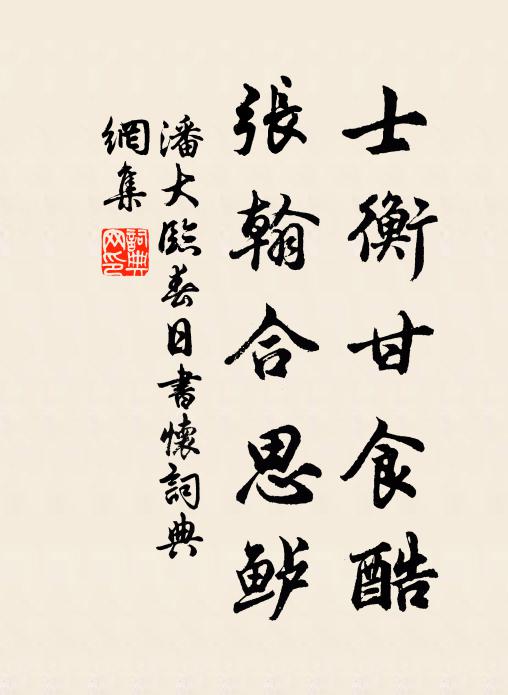 士衡甘食酷
張翰合思鲈
潘大臨春日書懷詞典
網集
詞典
网印